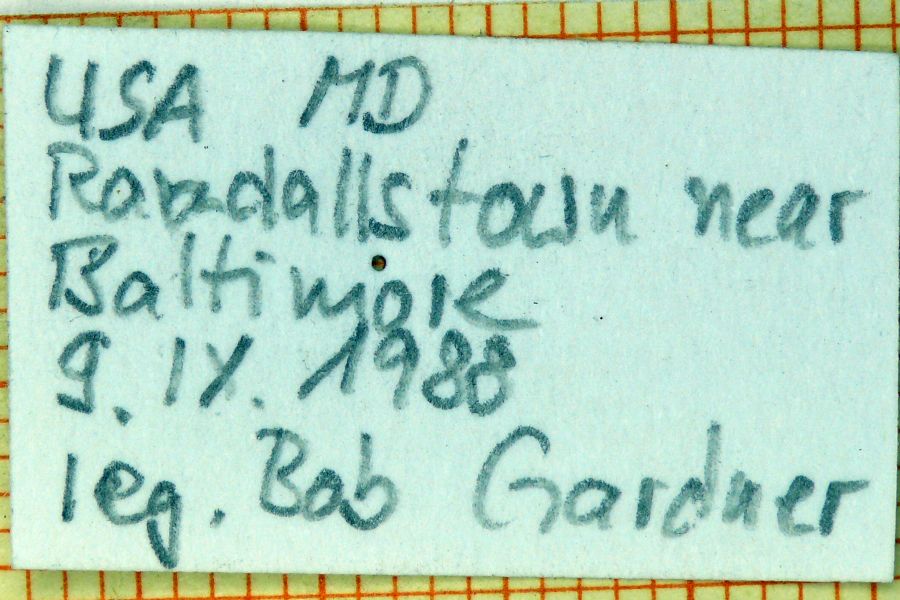 USA MD
Randallstown near
Baltimore
9. IX. 1988
leg. Bob Gardner